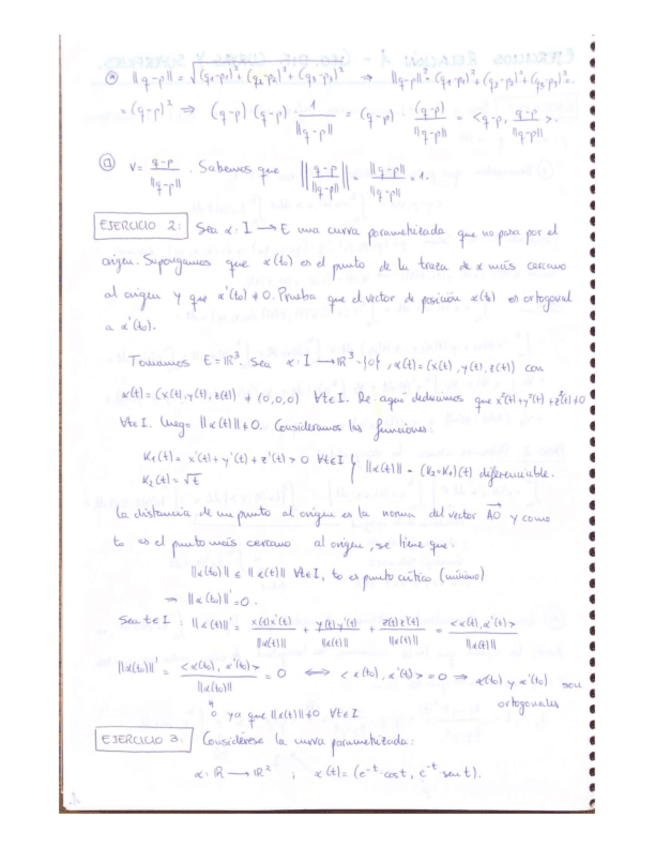 * ||q-p|| = √(q1-p1)²+(q2-p2)²+(q3-p3)² ⇒ ||q-p||² = (q1-p1)²+(q2-p2)²+(q3-p3)² =
= (q-p)² ⇒ (q-p) (q-p) · 1/||q-p|| = (q-p) · (q-p)/||q-p|| = <q-p, q-p/||q-p||>.
a) v= q-p/||q-p|| . Sabemos que || q-p/||q-p|| || = ||q-p||/||q-p|| = 1.
EJERCICIO 2: Sea α: I → E una curva parametrizada que no pasa por el
origen. Supongamos que α(t₀) es el punto de la traza de α más cercano
al origen y que α'(t₀) ≠ 0. Prueba que el vector de posición α(t₀) es ortogonal
a α'(t₀).
Tomamos E=ℝ³. Sea α: I → ℝ³-{0}, α(t)=(x(t), y(t), z(t)) con
α(t)=(x(t), y(t), z(t)) ≠ (0,0,0) ∀t∈I. De aquí deducimos que x²(t)+y²(t)+z²(t)≠0
∀t∈I. Luego ||α(t)||≠0. Consideramos las funciones:
K₁(t) = x²(t)+y²(t)+z²(t)>0 ∀t∈I
K₂(t) = √t } ||α(t)|| = (K₂∘K₁)(t) diferenciable.
La distancia de un punto al origen es la norma del vector AO y como
t₀ es el punto más cercano al origen, se tiene que:
||α(t₀)|| ≤ ||α(t)|| ∀t∈I, t₀ es punto crítico (mínimo)
⇒ ||α(t₀)||'=0.
Sea t∈I : ||α(t)||' = x(t)x'(t)/||α(t)|| + y(t)y'(t)/||α(t)|| + z(t)z'(t)/||α(t)|| = <α(t),α'(t)>/||α(t)||
||α(t₀)||' = <α(t₀), α'(t₀)>/||α(t₀)|| = 0 ⟺ <α(t₀), α'(t₀)> = 0 ⇒ α(t₀) y α'(t₀) son
ortogonales
0 ya que ||α(t)||≠0, ∀t∈I
EJERCICIO 3: Considérese la curva parametrizada:
α: ℝ → ℝ² ; α(t)=(e^-t·cost, e^-t·sent).
1.